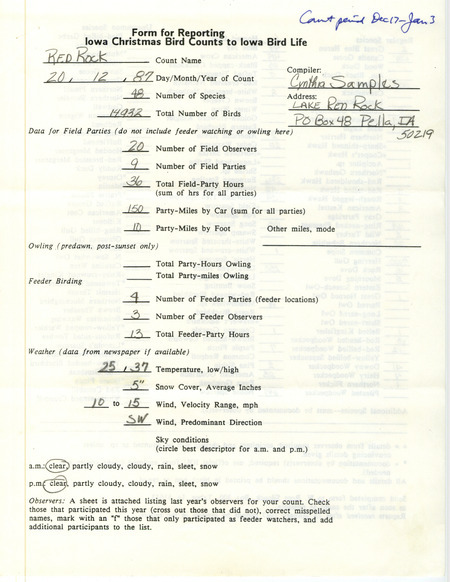 Count period Dec 17-Jan 3
Form for Reporting
Iowa Christmas Bird Counts to Iowa Bird Life
RED ROCK Count Name
20, 12, 87 Day/Month/Year of Count
Compiler:
Cynthia Samples
48 Number of Species
Address:
LAKE RED ROCK
14932 Total Number of Birds
PO Box 48 Pella, IA
50219
Data for Field Parties (do not include feeder watching or owling here)
20 Number of Field Observers
9 Number of Field Parties
36 Total Field-Party Hours
(sum of hrs for all parties)
150 Party-Miles by Car (sum for all parties)
10 Party-Miles by Foot Other miles, mode
Owling (predawn, post-sunset only)
Total Party-Hours Owling
Total Party-miles Owling
Feeder Birding
4 Number of Feeder Parties (feeder locations)
3 Number of Feeder Observers
13 Total Feeder-Party Hours
Weather (data from newspaper if available)
25, 37 Temperature, low/high
5" Snow Cover, Average Inches
10 to 15 Wind, Velocity Range, mph
SW Wind, Predominant Direction
Sky conditions
(circle best descriptor for a.m. and p.m.)
a.m.: clear, partly cloudy, cloudy, rain, sleet, snow
p.m.: clear, partly cloudy, cloudy, rain, sleet, snow
Observers: A sheet is attached listing last year's observers for your count. Check
those that participated this year (cross out those that did not), correct misspelled
names, mark with an "f" those that only participated as feeder watchers, and add
additional participants to the list.